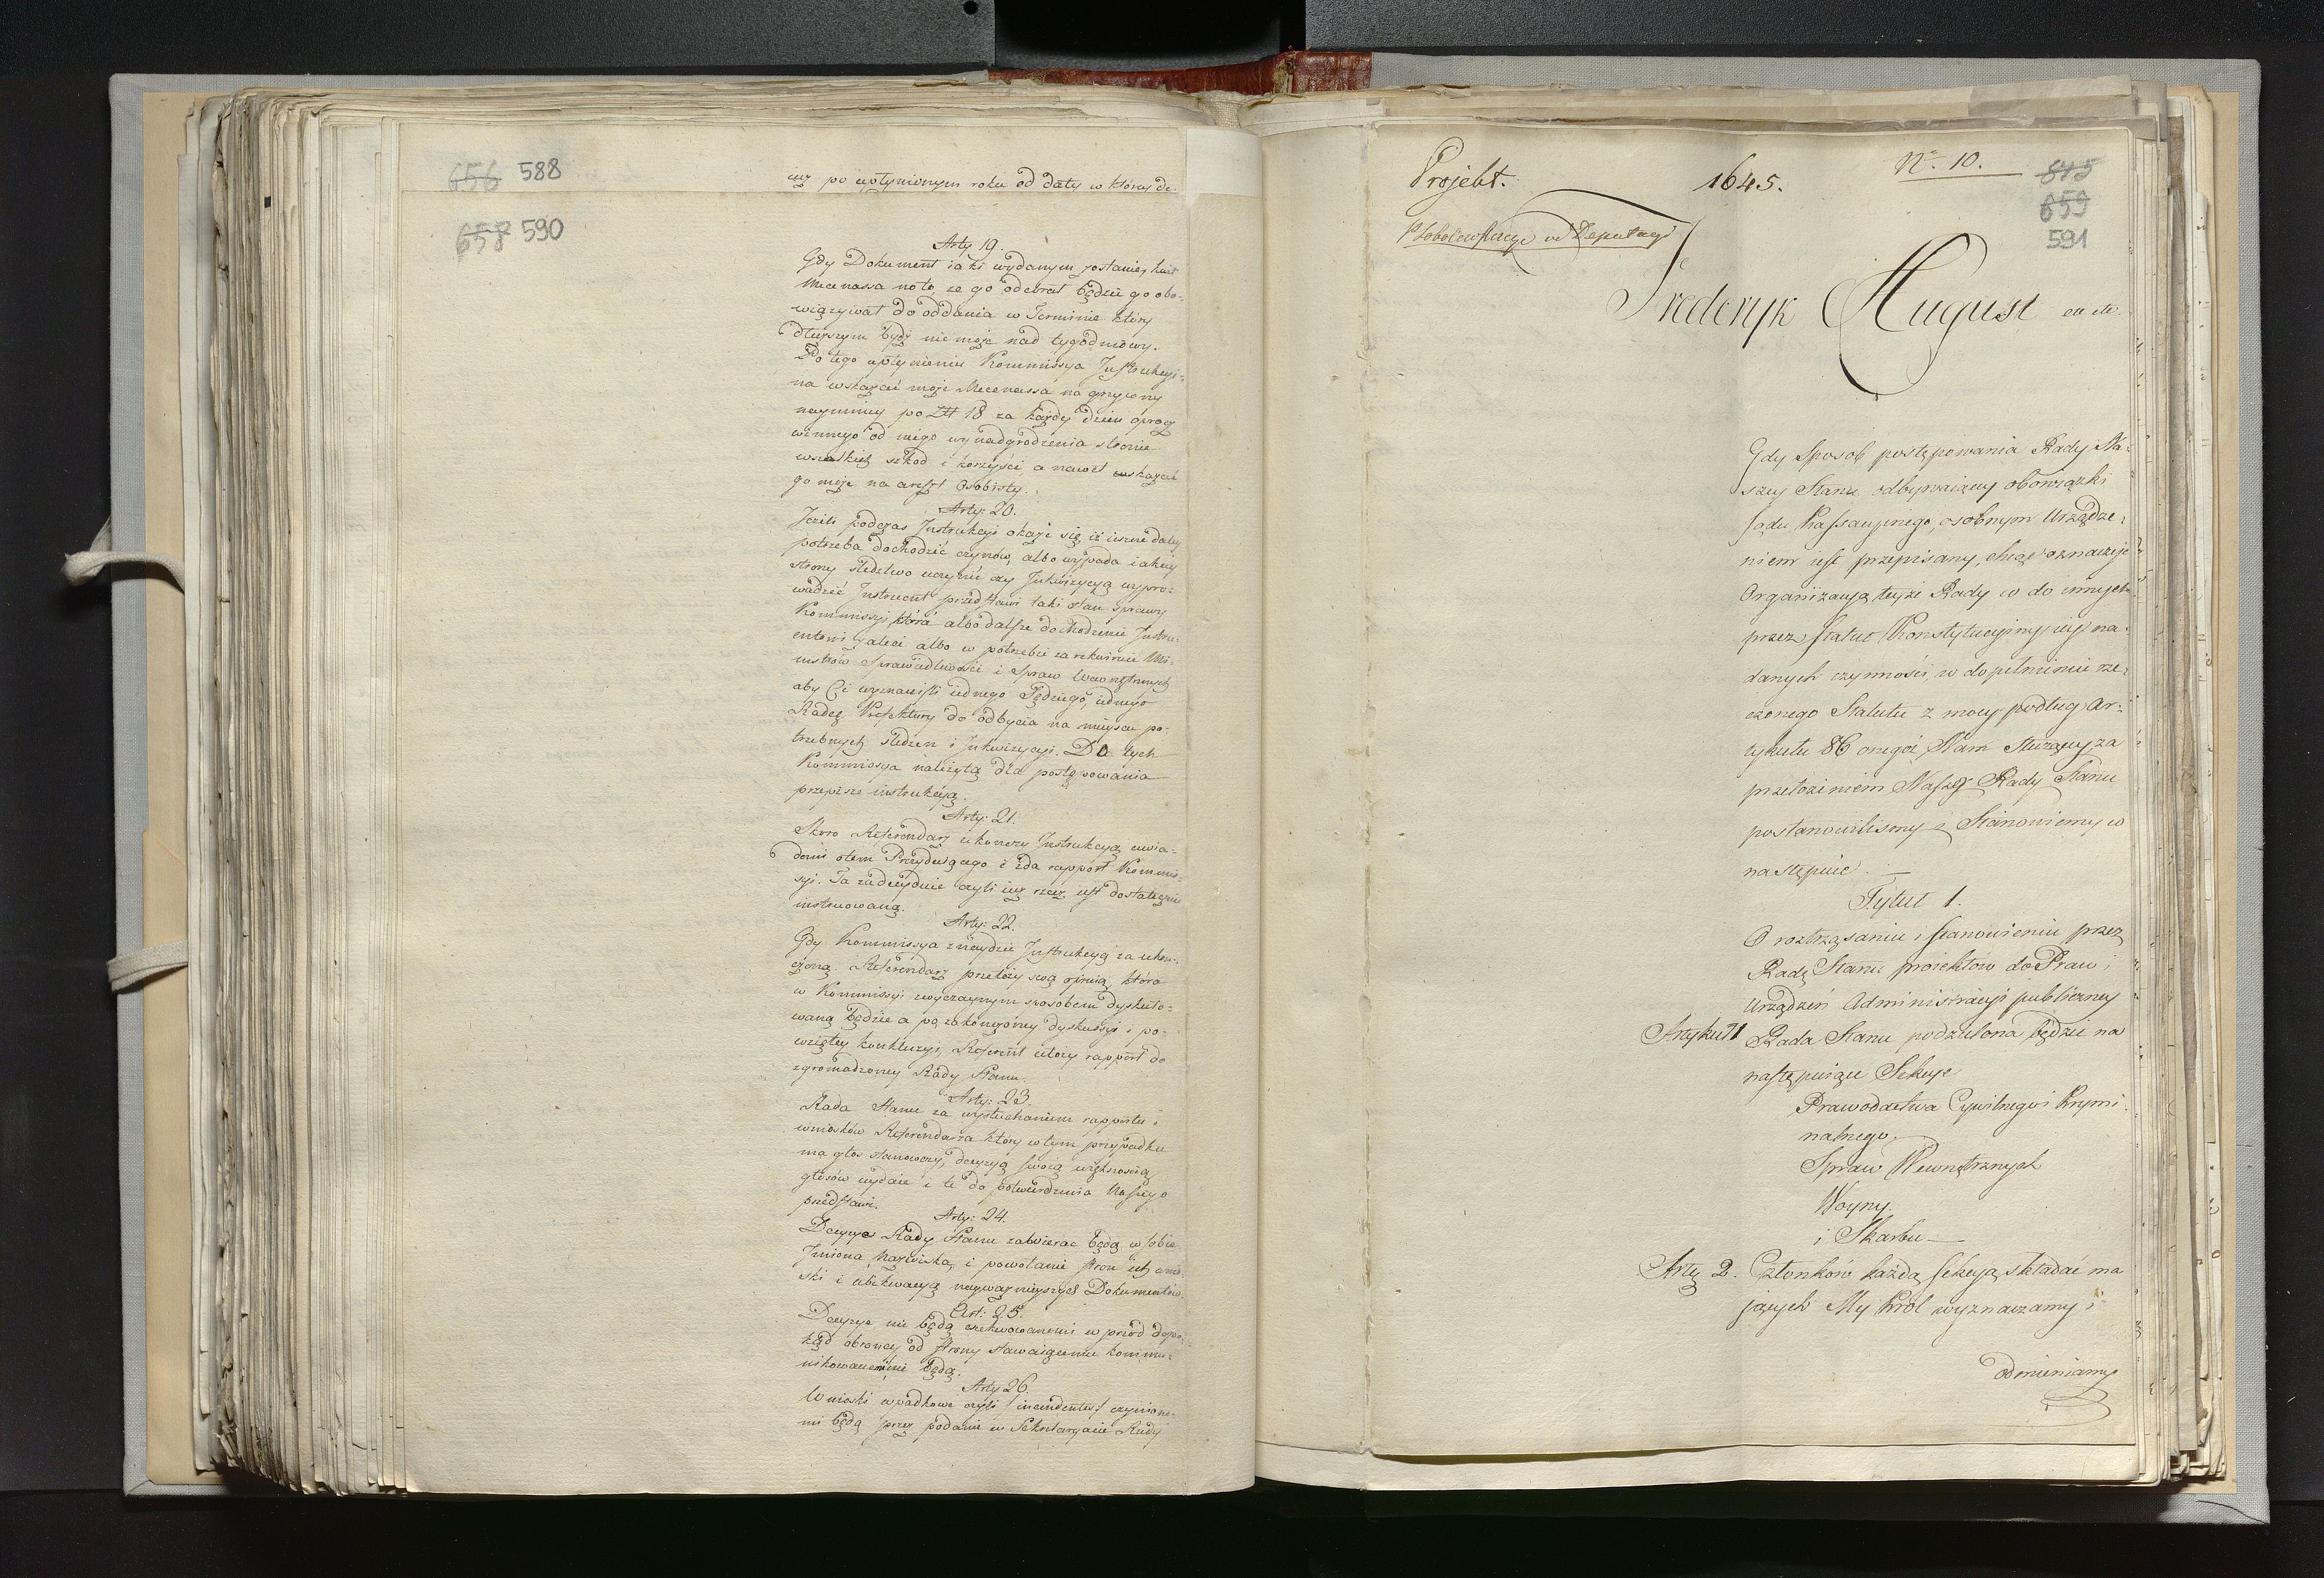 656 588
cy po upłynionym roku od daty w którey de-
658 590
Arty 19.
Gdy Dokument iaki wydanym zostanie, kwit
Mecenassa na to, ze go odebrał będzie go obo-
wiązywał do oddania w Terminie który
dłuższym bydź nie może nad tygodniowy.
Po tego upłynieniu Kommissya Instrukcyi-
na wskazać może Mecenassa na grzywny
naymniey po Zł 18 za każdy dzień oprocz
winnego od niego wynadgrodzenia stronie
wszelkich szkod i korzyści a nawet wskazać
go może na areszt Osobisty.
Arty: 20.
Jeżeli podczas Instrukcyi okaże się iż ieszcze daley
potrzeba dochodzić czynów, albo wypada iakiey
strony śledztwo uczynić czy Inkwizycyą wypro-
wadzić Instruent przedstawi taki stan sprawy
Kommissyi, która albo dalsze dochodzenie Instru-
entowi zaleci albo w potrzebie zarekwiruie Mi-
nistrów Sprawiedliwości i Spraw Wewnętrznych
aby Ci wyznaczyli iednego Sędziego, iednego
Radcę Prefektury do odbycia na mieyscu po-
trzebnych śledzeń i Inkwizycyi. Dla tych
Kommissya należytą dla postępowania
przepisze instrukcyą.
Arty: 21.
Skoro Referendarz ukonczy Instrukcyą uwia-
domi o tem Prezyduiącego i zda rapport Kommis-
syi. Ta zadecyduie czyli iuż rzecz iest dostatecznie
instruowaną.
Arty: 22.
Gdy Kommissya znaydzie Instrukcyą za ukon-
czoną. Referendarz przełoży swą opinią, która
w Kommissyi zwyczaynym sposobem dyskuto-
waną będzie a po zakończoney dyskussyi i po-
wziętey konkluzyi, Referent ułoży rapport do
zgromadzoney Rady Stanu.
Arty: 23.
Rada Stanu za wysłuchaniem rapportu i
wniosków Referendarza który w tym przypadku
ma głos stanowczy, decyzyą swoią większością
głosów wydaie i te do potwierdzenia Naszego
przedstawi.
Arty: 24.
Decyzye Rady Stanu zabierac będą w sobie
Imiona, Nazwiska, i powołanie stron ich wnio-
ski i allegacyą nayważnieyszych Dokumentów.
Art: 25.
Decyzye nie będą exekwowanemi w przód dopo-
kąd obroncy od strony stawaiącemu kommu-
nikowanemi nie będą.
Arty 26.
Wnioski wpadkowe czyli incindentes, czynione-
mi będą przez podanie w Sekretaryacie Rady
Projekt.
1645.
Nº. 10.
815
659
591
P Sobolewskiego od Deputacyi
Frederyk August etc etc.
Gdy Sposob postępowania Rady Na-
szey Stanu odbywaiącey obowiązki
Sądu Kassacyinego, osobnym Urządze-
niem iest przepisany, chcąc oznaczyć
Organizacyą teyże Rady co do innych
przez Statut Konstytucyiny iey na-
danych czynności, w dopełnieniu rze-
czonego Statutu z mocy podług Ar-
tykułu 86 onegoż Nam służącey, za
przełożeniem Naszey Rady Stanu
postanowilismy i Stanowiemy co
następuie. —
Tytuł 1.
O roztrząsaniu i stanowieniu przez
Radę Stanu proiektów do Praw i
Urządzeń Administracyi publiczney
Artykuł 1 Rada Stanu podzielona będzie na
następuiące Sekcye
Prawodastwa Cywilnego i Krymi-
nalnego.
Spraw Wewnętrznych
Woyny.
i Skarbu —
Arty 2. Członków każdą Sekcyą składać ma
jących My Król wyznaczamy i
odmieniamy